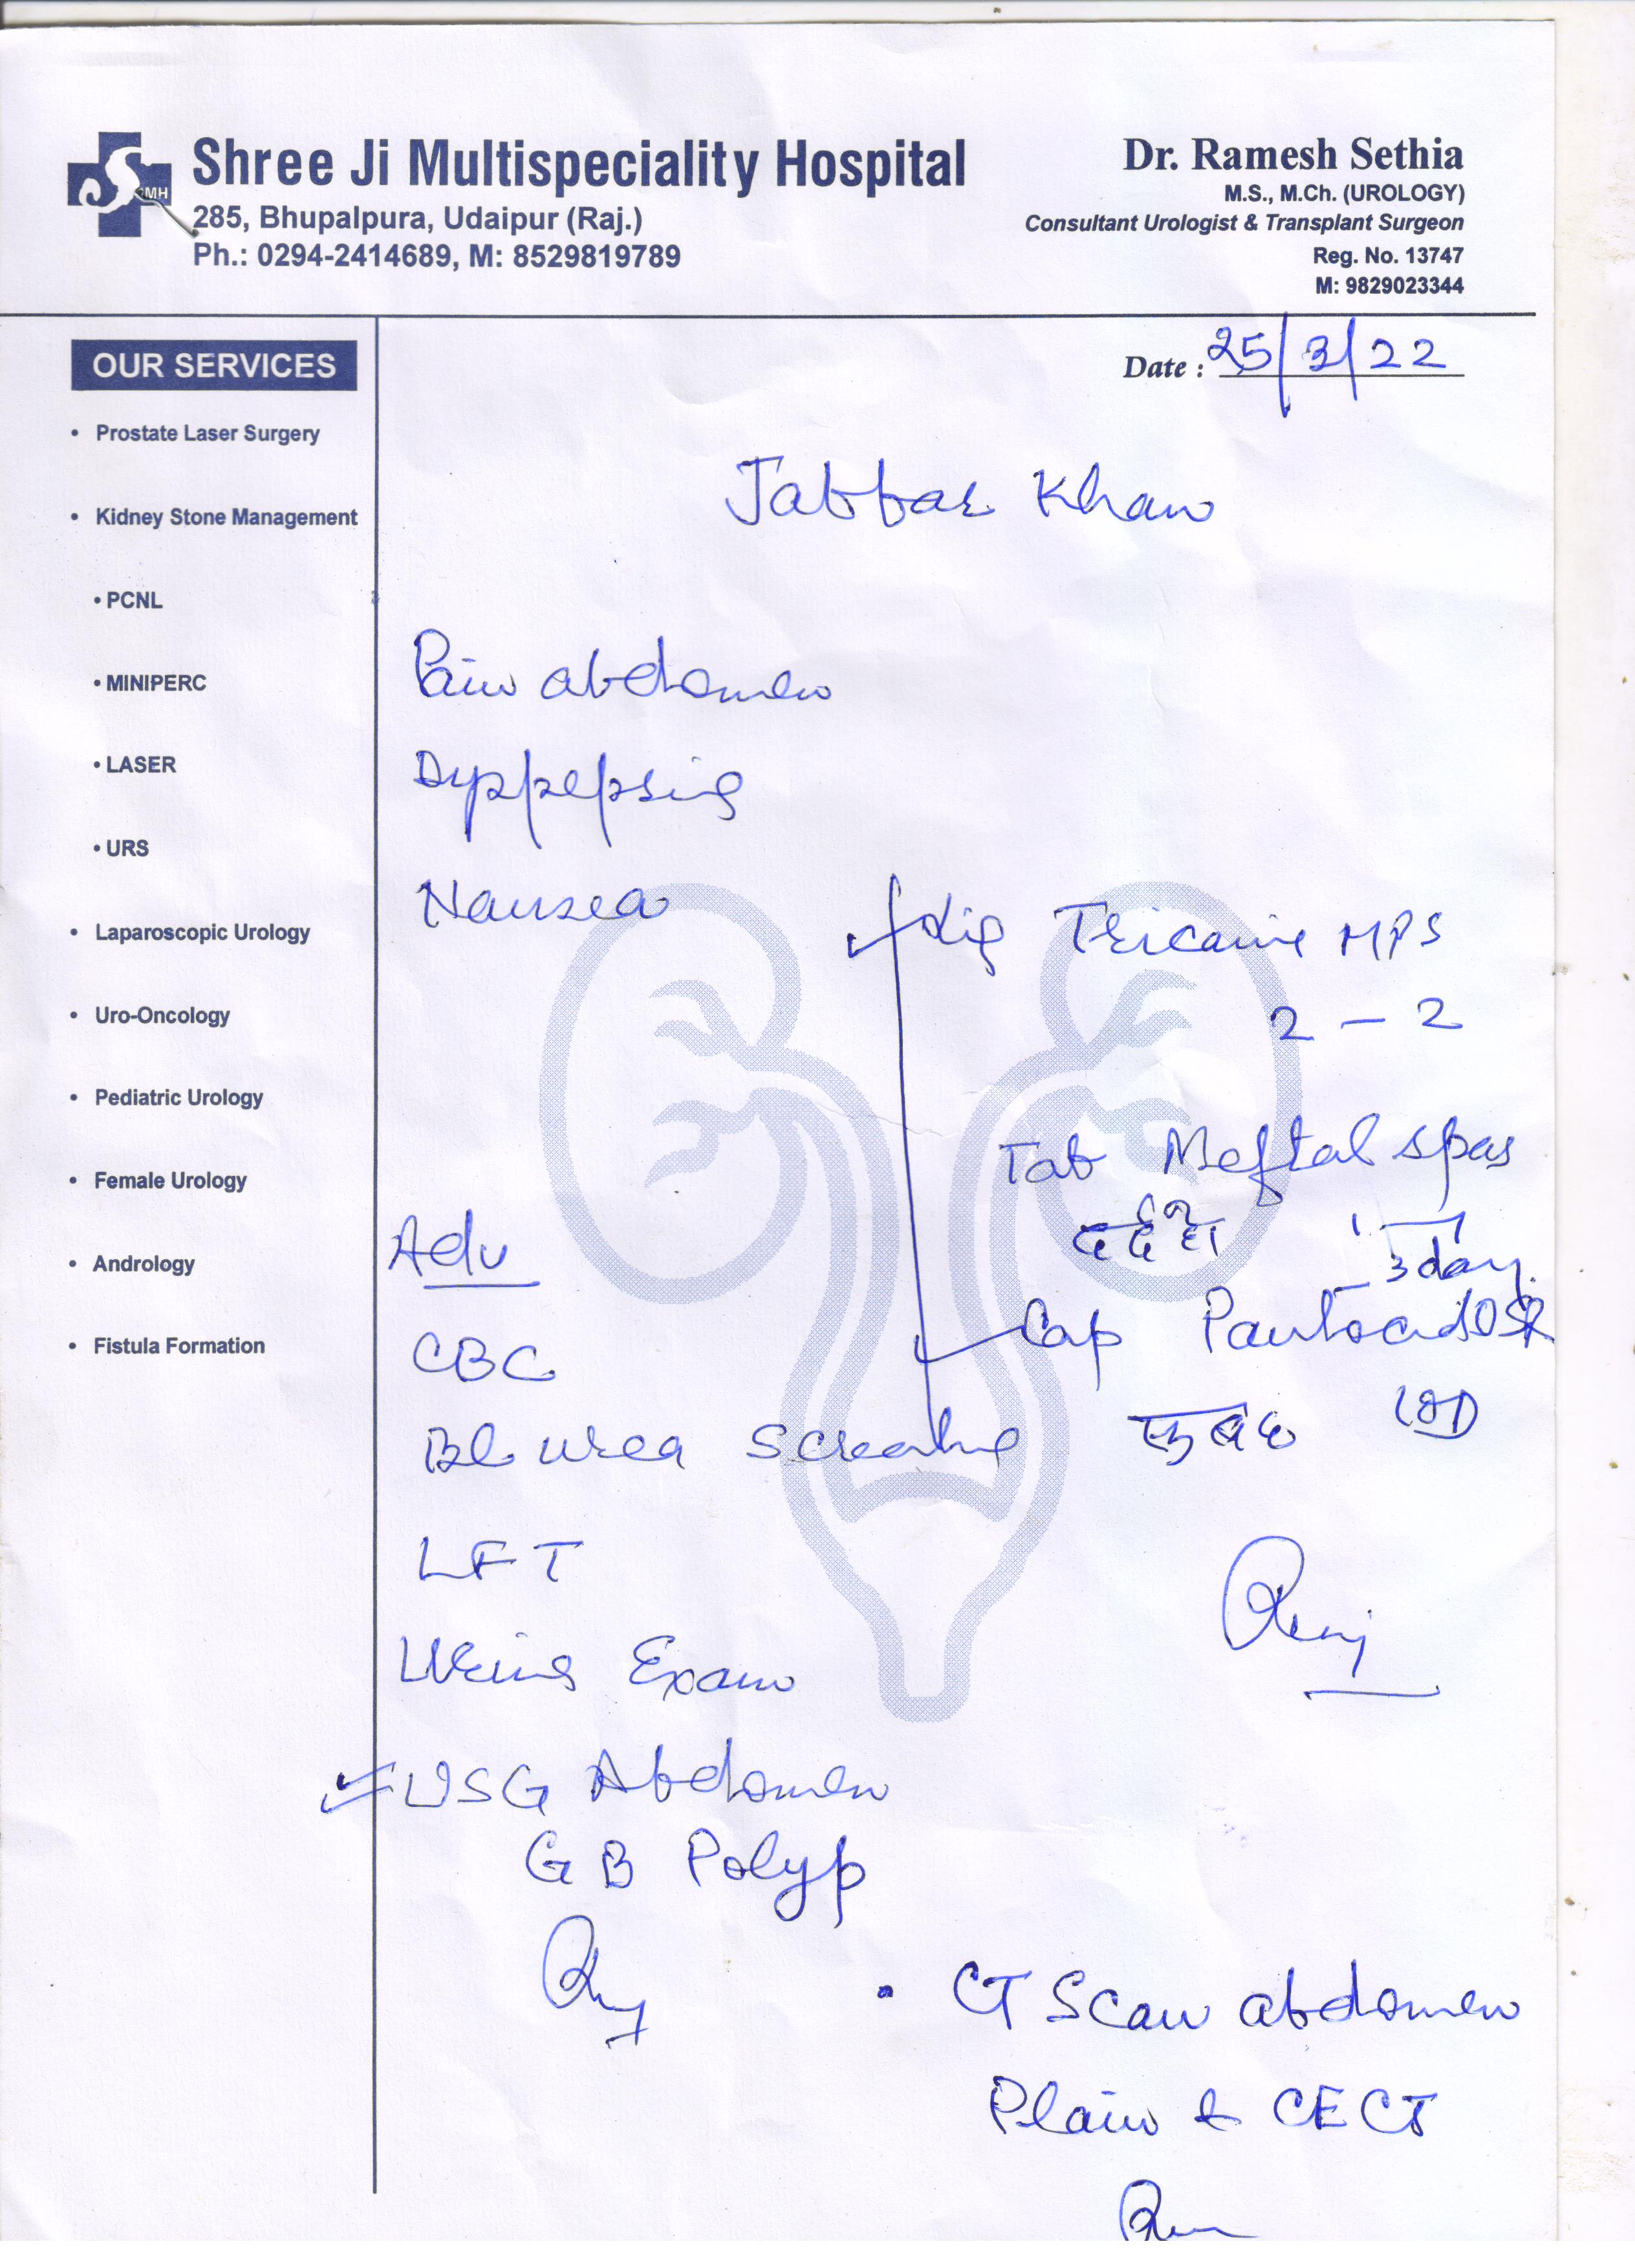 SMH
Shree Ji Multispeciality Hospital
285, Bhupalpura, Udaipur (Raj.)
Ph.: 0294-2414689, M: 8529819789
Dr. Ramesh Sethia
M.S., M.Ch. (UROLOGY)
Consultant Urologist & Transplant Surgeon
Reg. No. 13747
M: 9829023344
OUR SERVICES
• Prostate Laser Surgery
• Kidney Stone Management
• PCNL
• MINIPERC
• LASER
• URS
• Laparoscopic Urology
• Uro-Oncology
• Pediatric Urology
• Female Urology
• Andrology
• Fistula Formation
Date : 25/3/22
Jabbar Khan
Pain abdomen
Dyspepsia
Nausea
Adv
CBC
Bl urea S creatine
LFT
Urine Exam
USG Abdomen
GB Polyp
Liq Tricaine MPS
2 - 2
Tab Meftal spas
3 day
Cap Pantocid DSR
OD
• CT Scan abdomen
Plain & CECT